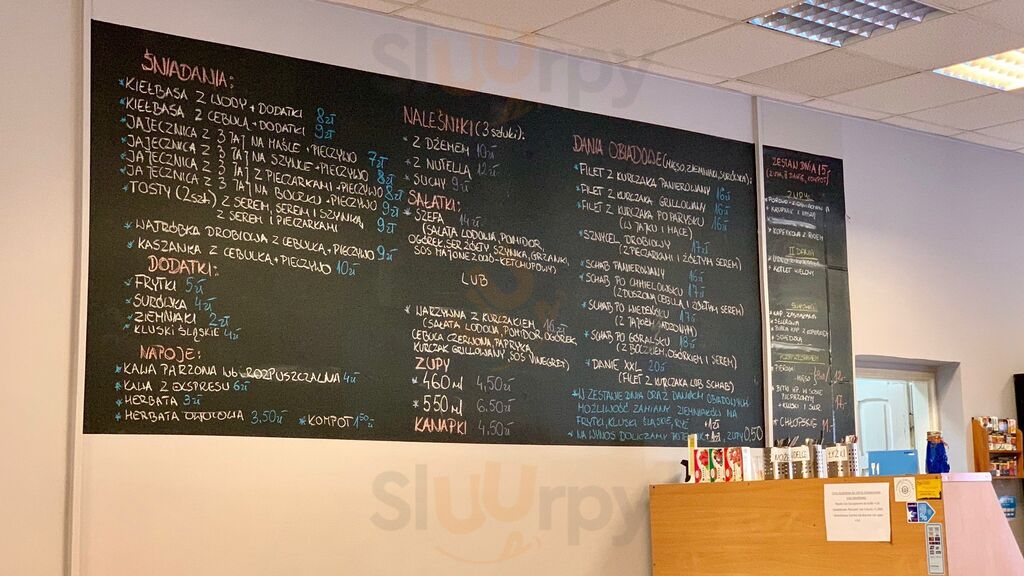 ŚNIADANIA:
* KIEŁBASA Z WODY + DODATKI 8zł
* KIEŁBASA Z CEBULĄ + DODATKI 9zł
* JAJECZNICA Z 3 JAJ NA MAŚLE + PIECZYWO 7zł
* JAJECZNICA Z 3 JAJ NA SZYNCE + PIECZYWO 8zł
* JAJECZNICA Z 3 JAJ Z PIECZARKAMI + PIECZYWO 8zł
* JAJECZNICA Z 3 JAJ NA BOCZKU + PIECZYWO 9zł
* TOSTY (2szt) Z SEREM, SEREM I SZYNKĄ,
Z SEREM I PIECZARKAMI 9zł
* WĄTRÓBKA DROBIOWA Z CEBULKĄ + PIECZYWO 9zł
* KASZANKA Z CEBULKĄ + PIECZYWO 10zł
DODATKI:
* FRYTKI 5zł
* SURÓWKA 4zł
* ZIEMNIAKI 2zł
* KLUSKI ŚLĄSKIE 4zł
NAPOJE:
* KAWA PARZONA lub ROZPUSZCZALNA 4zł
* KAWA Z EKSPRESU 6zł
* HERBATA 3zł
* HERBATA OWOCOWA 3,50zł * KOMPOT 1,50zł
NALEŚNIKI (3 sztuki):
* Z DŻEMEM 10zł
* Z NUTELLĄ 12zł
* SUCHY 9zł
SAŁATKI:
* SZEFA 14zł
(SAŁATA LODOWA, POMIDOR,
OGÓREK, SER ŻÓŁTY, SZYNKA, GRZANKI,
SOS MAJONEZOWO-KETCHUPOWY)
LUB
* WARZYWNA Z KURCZAKIEM 16zł
(SAŁATA LODOWA, POMIDOR, OGÓREK,
CEBULA CZERWONA, PAPRYKA,
KURCZAK GRILLOWANY, SOS VINEGRET)
ZUPY
* 460 ml 4,50zł
* 550 ml 6,50zł
KANAPKI 4,50zł
DANIA OBIADOWE (MIĘSO, ZIEMNIAKI, SURÓWKA):
* FILET Z KURCZAKA PANIEROWANY 16zł
* FILET Z KURCZAKA GRILLOWANY 16zł
* FILET Z KURCZAKA PO PARYSKU 16zł
(W JAJKU I MĄCE)
* SZNYCEL DROBIOWY 17zł
(Z PIECZARKAMI I ŻÓŁTYM SEREM)
* SCHAB PANIEROWANY 16zł
* SCHAB PO CHMIELOWSKU 17zł
(Z DUSZONĄ CEBULĄ I ŻÓŁTYM SEREM)
* SCHAB PO WIEDEŃSKU 17zł
(Z JAJEM SADZONYM)
* SCHAB PO GÓRALSKU 18zł
(Z BOCZKIEM, OGÓRKIEM I SEREM)
* DANIE XXL 20zł
(FILET Z KURCZAKA LUB SCHAB)
* W ZESTAWIE DNIA ORAZ DANIACH OBIADOWYCH
MOŻLIWOŚĆ ZAMIANY ZIEMNIAKÓW NA
FRYTKI, KLUSKI ŚLĄSKIE, RYŻ +1zł
* NA WYNOS DOLICZAMY +1zł, ZUPY 0,50
ZESTAW DNIA 15zł
(ZUPA, II DANIE, KOMPOT)
ZUPY:
* KRUPNIK
* KOPERKOWA Z RYŻEM
II DANIA
* KOTLET MIELONY
SURÓWKI
* CHŁOPSKIE
NOŻE
WIDELCE
ŁYŻKI
sluurpy
sluurpy